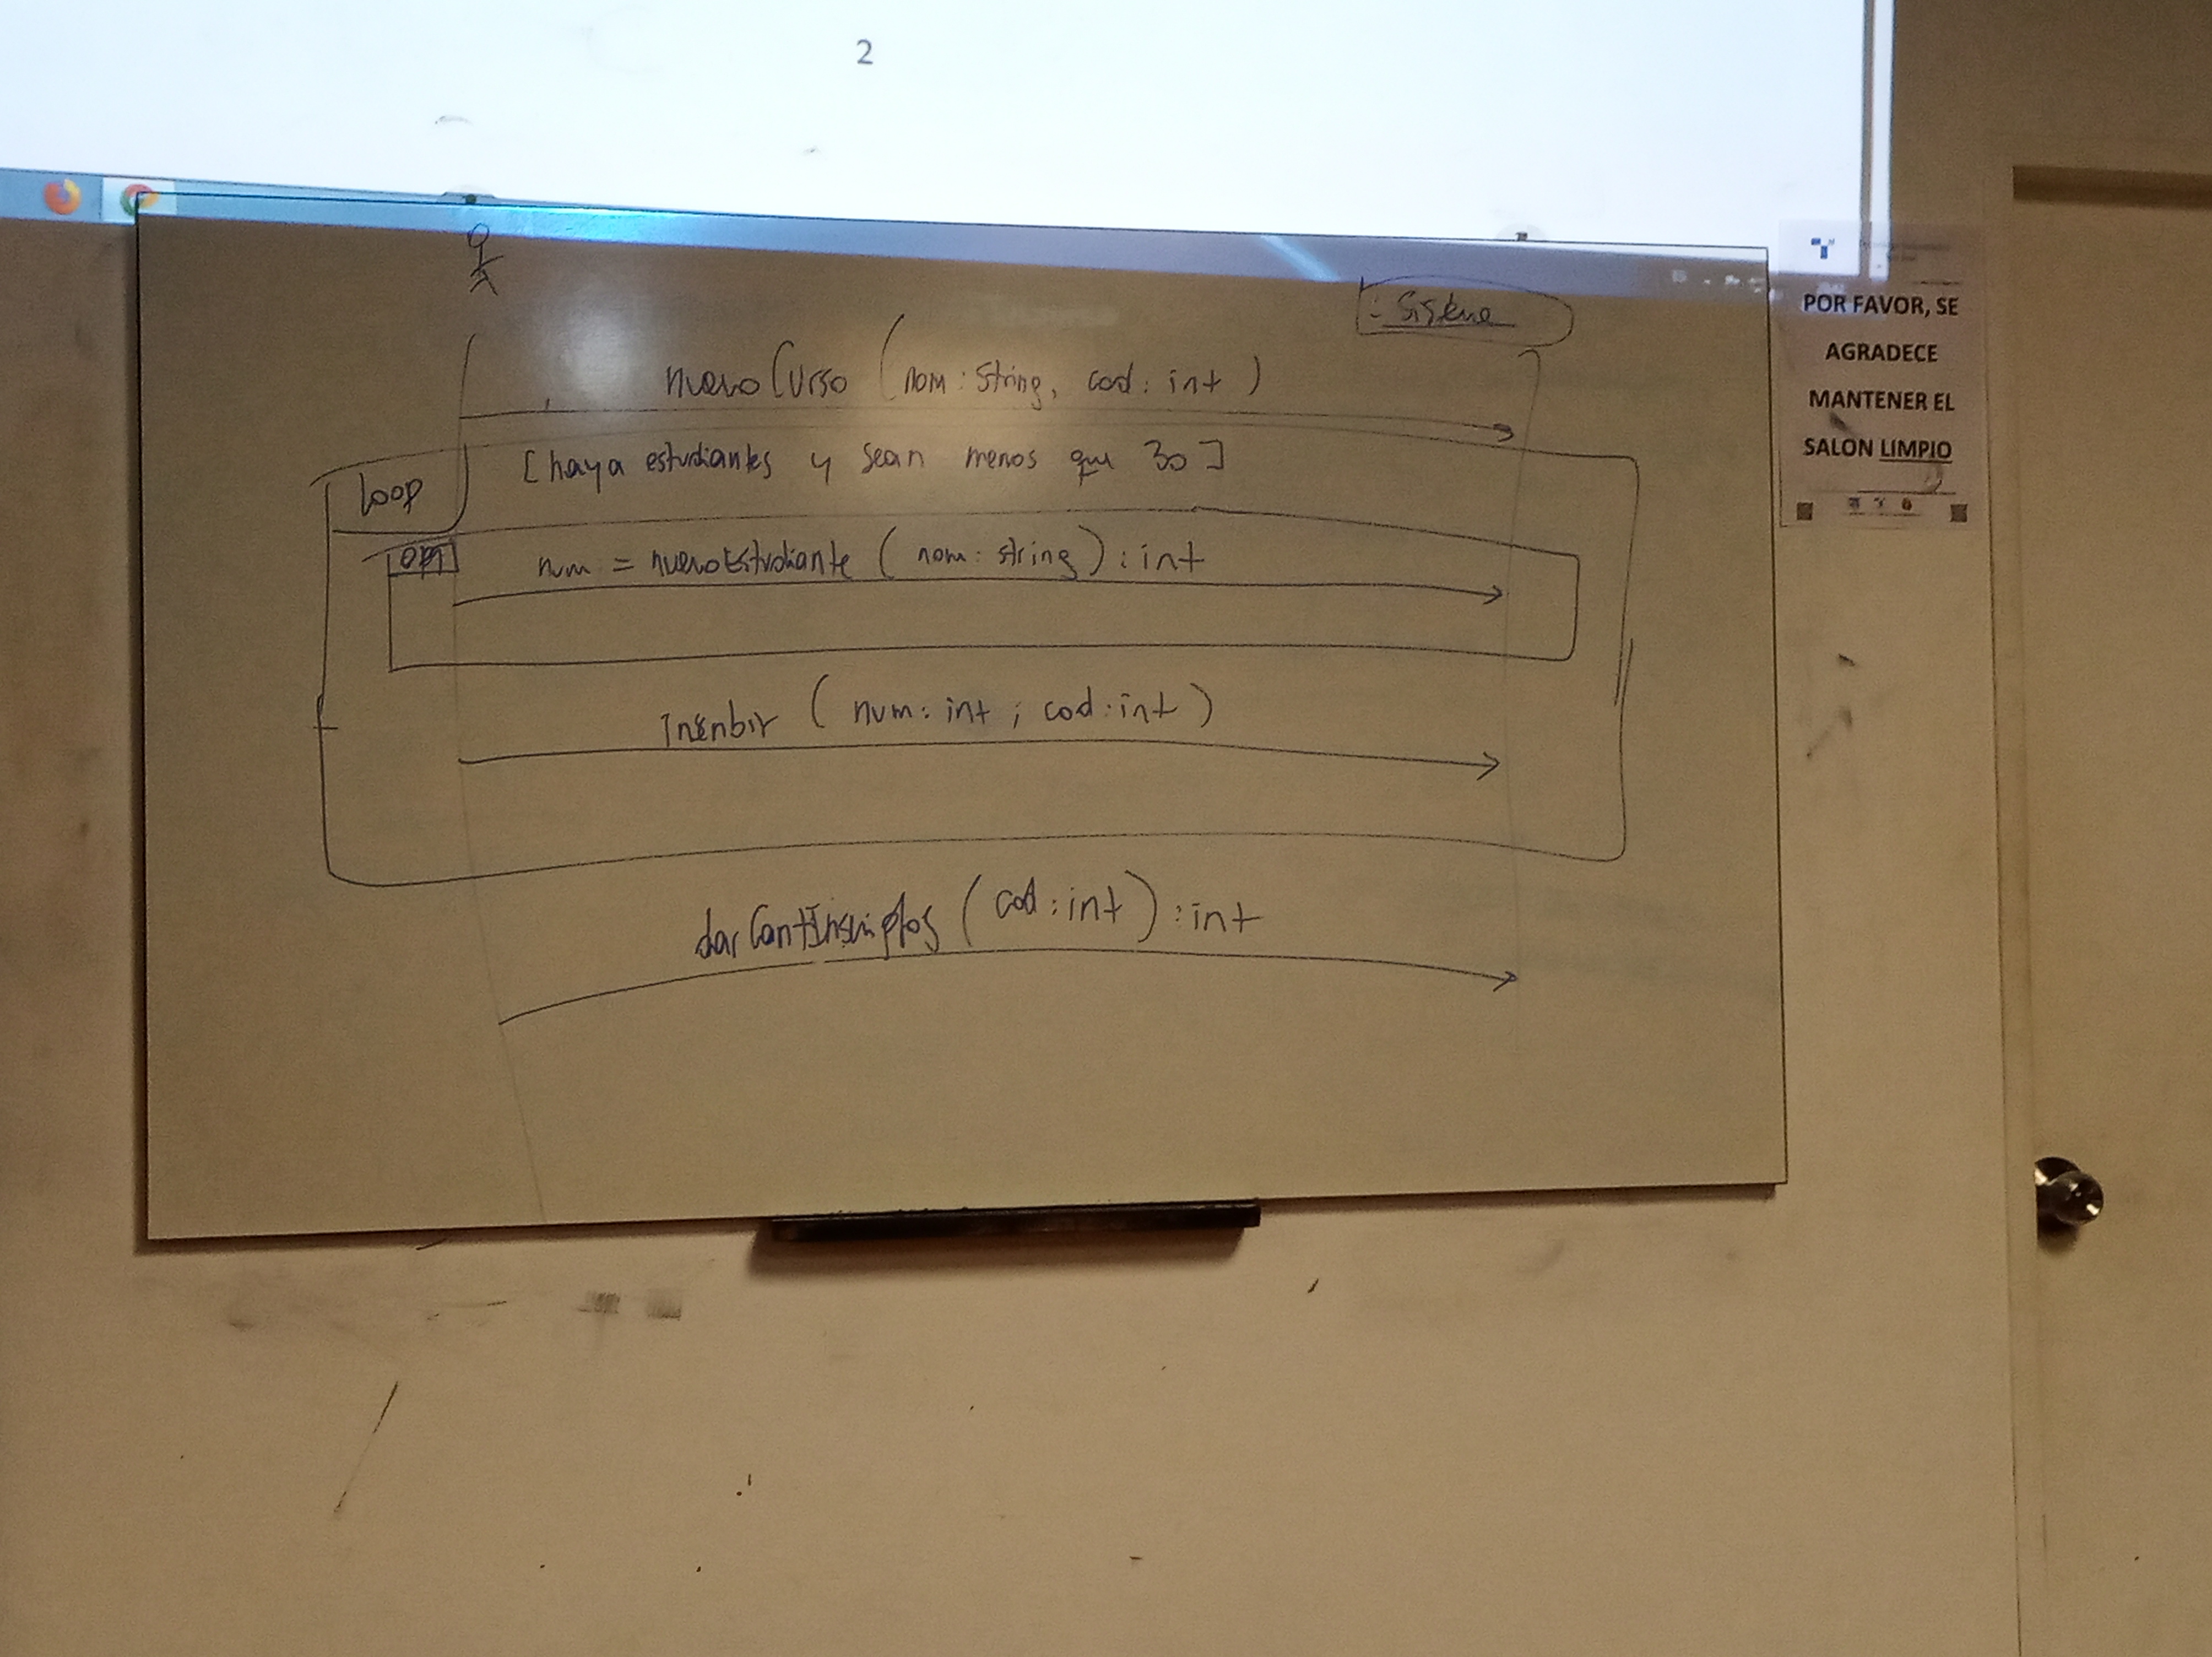 2
: Sistema
nuevoCurso (nom: string, cod: int)
loop
[haya estudiantes y sean menos que 30]
opt
num = nuevoEstudiante (nom: string): int
Inscribir (num: int; cod: int)
darCantInscriptos (cod: int): int
POR FAVOR, SE
AGRADECE
MANTENER EL
SALON LIMPIO